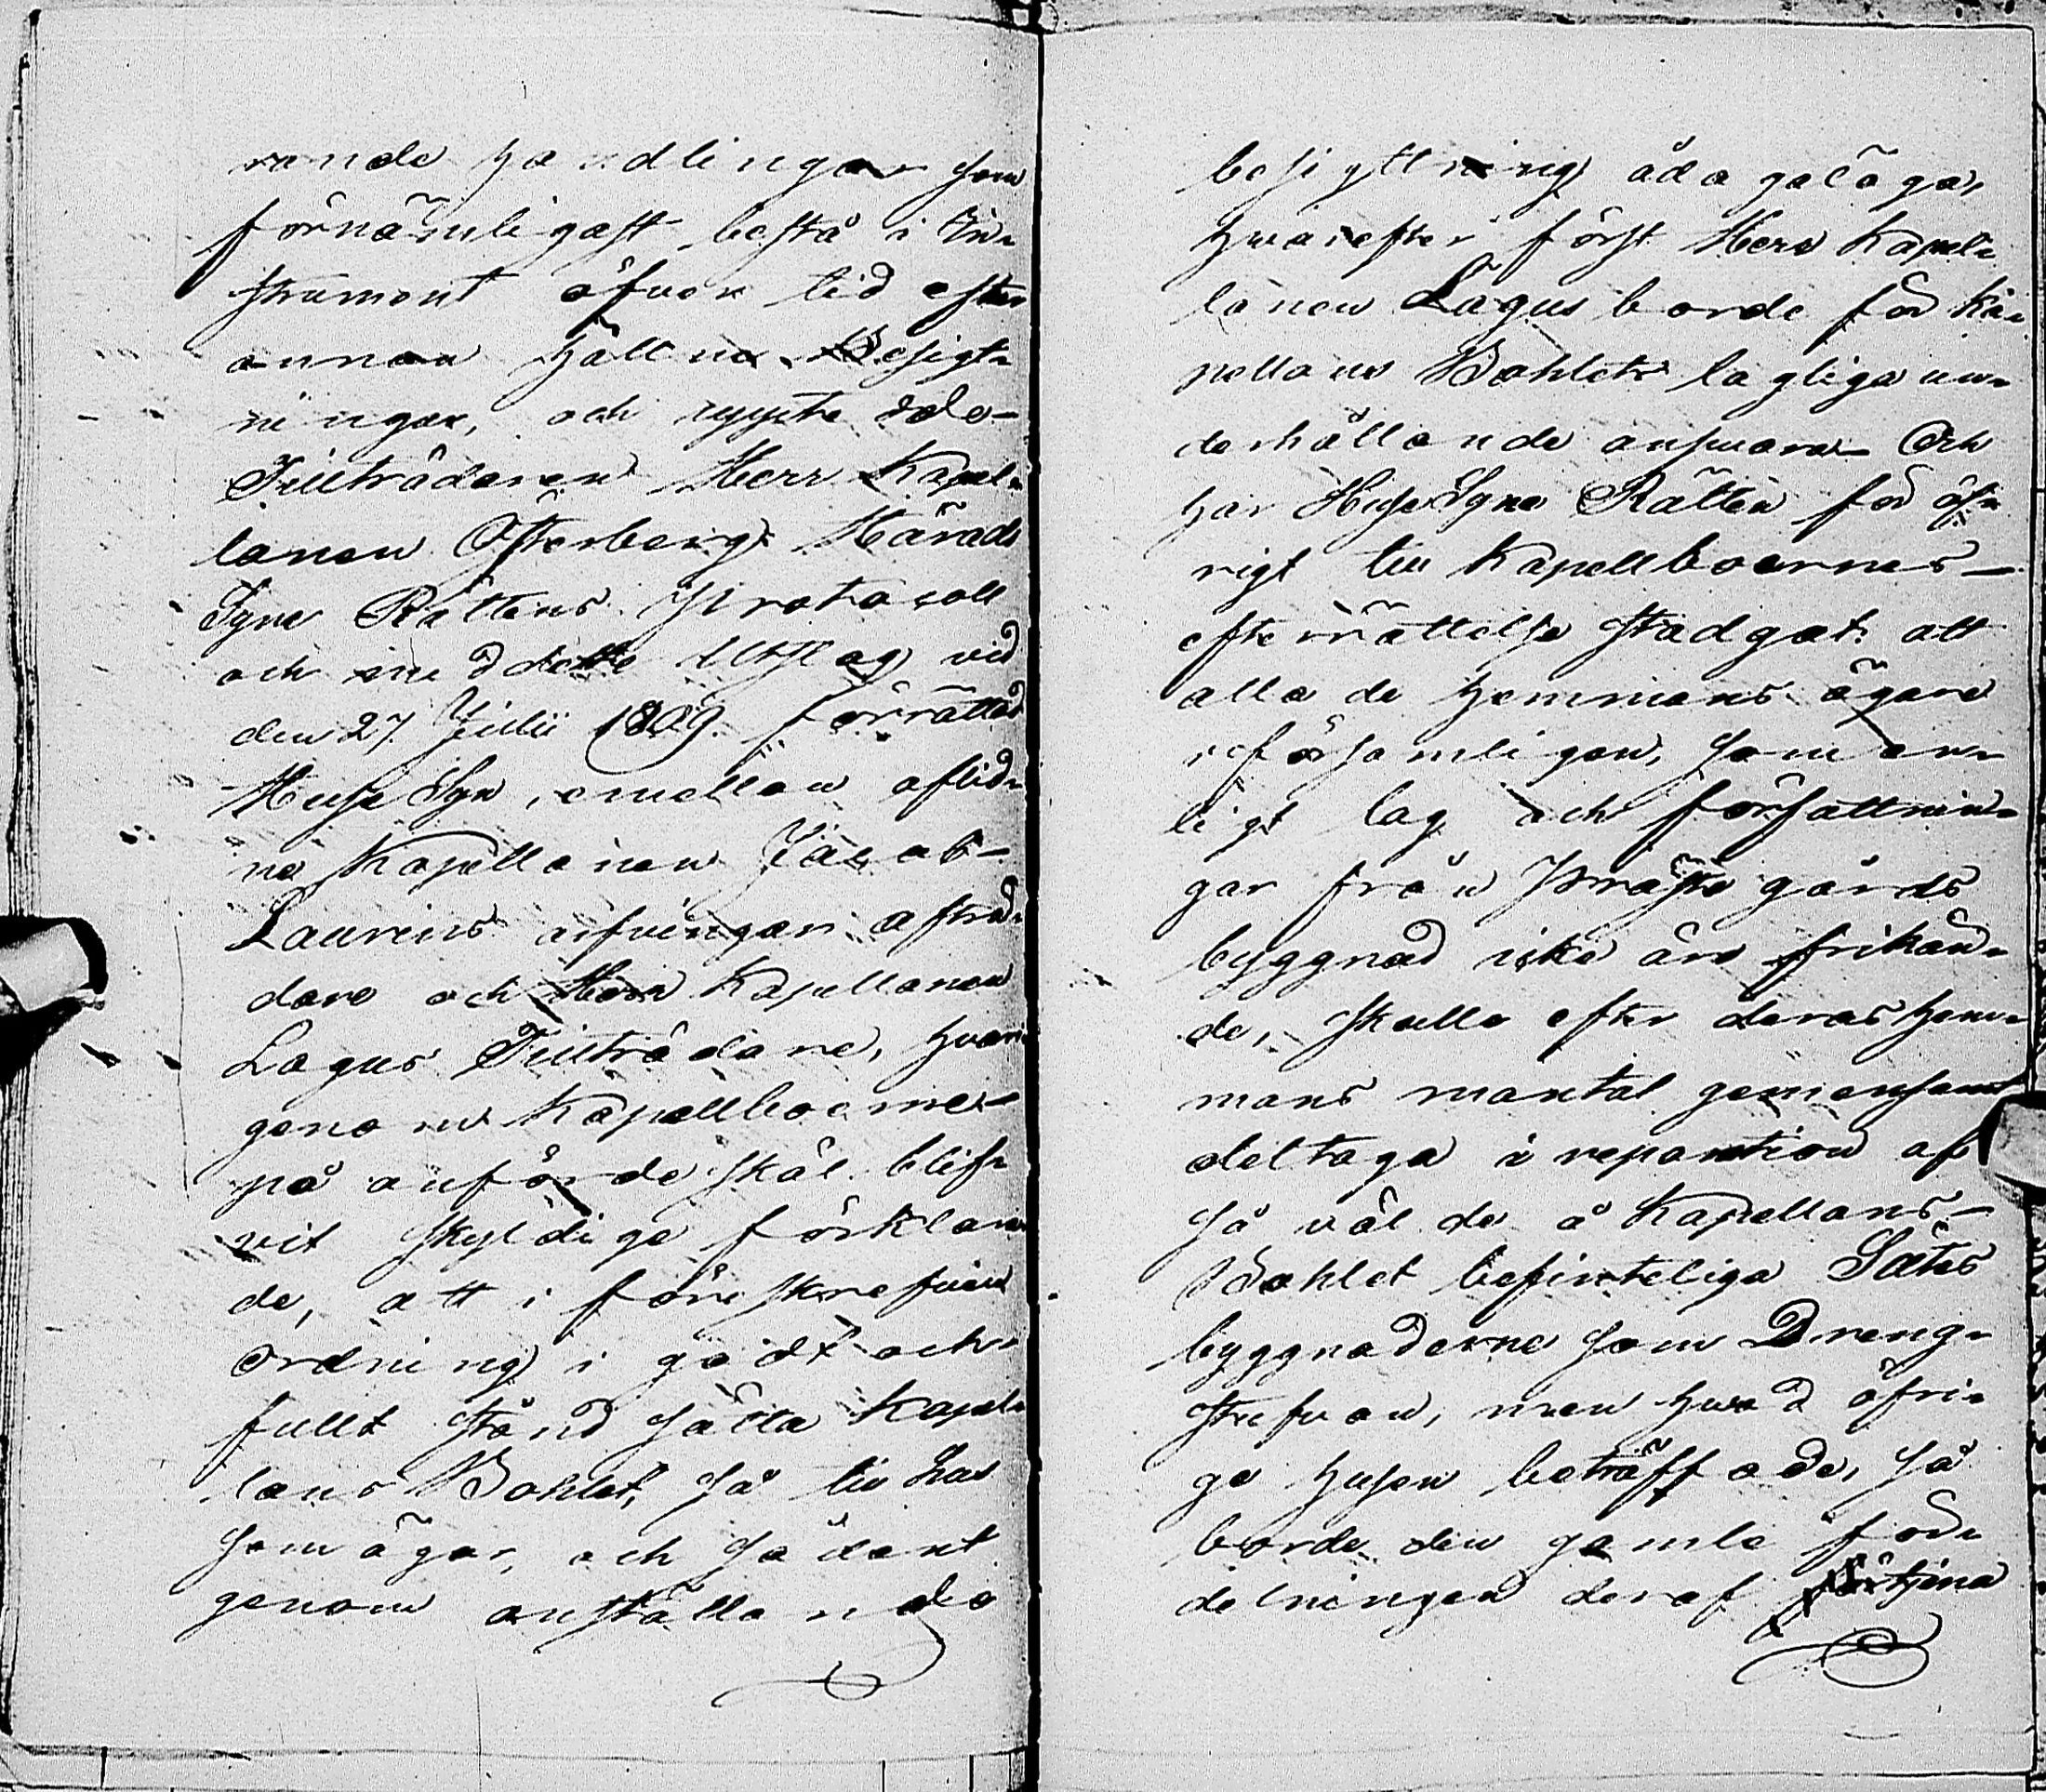 rande handlingar som
förnämligast bestå i In-
strument öfver tid efter
annan hållne Besigt-
ningar, och uppte
Tillträdaren Herr Kapel-
lanen Österberg Härads
Syne Rättens Protocoll
och meddelte Utslag vid
den 27 Julii 1809. förrättad
Huse Syn, emellan aflid-
ne Kapellanen Jacob
Laurins arfvingar afträ-
dare och Herr Kapellanen
Lagus Tillträdare, hvari-
genom Kapellboerne
på anförde skäl blif-
vit skyldige förklara-
de, att i föreskrefven
ordning i godt och
fullt stånd sätta Kapel-
lans Bohlet, så till hus
som ägor, och sådant
genom anställande
besigttning ådagalägga,
hvarefter först Herr Kapel-
lanen Lagus borde för Ka-
pellans Bohlets lagliga un-
derhållande ansvara. Och
har HuseSyne Rätten för öf-
rigt till Kapellboernes
efterrättelse stadgat att
alla de hemmans ägare
i församligen, som en-
ligt lag och författnin-
gar från Prästegårds
byggnad icke äro frikän-
de, skulle efter deras hem-
mans mantal gemensamt
deltaga i reparation af
så väl de å Kapellans
Bohlet befinteliga Sätes
byggnaderne som Dreng-
stufvan, men hvad öfri-
ge husen beträffade, så
borde den gamle för-
delningen deraf förtjena